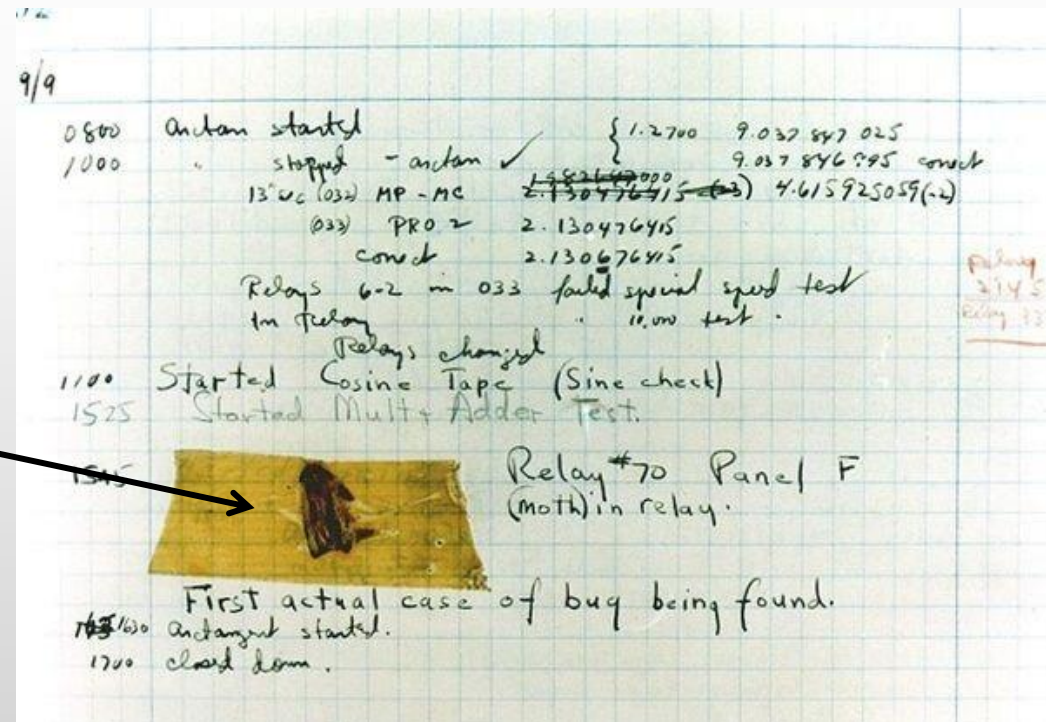 9/9
0800 antan started { 1.2700 9.037 847 025
1000 " stopped - antan ✓ 9.037 846 995 correct
(032) MP - MC 2.130476415 4.615925059(-2)
(033) PRO 2 2.130476415
correct 2.130676415
Relays 6-2 in 033 failed special speed test
In relay " 10,000 test.
Relays changed
1100 Started Cosine Tape (Sine check)
1525 Started Mult + Adder Test.
1545 Relay #70 Panel F
(moth) in relay.
First actual case of bug being found.
1630 antangent started.
1700 closed down.
Relay
2145
Relay 33